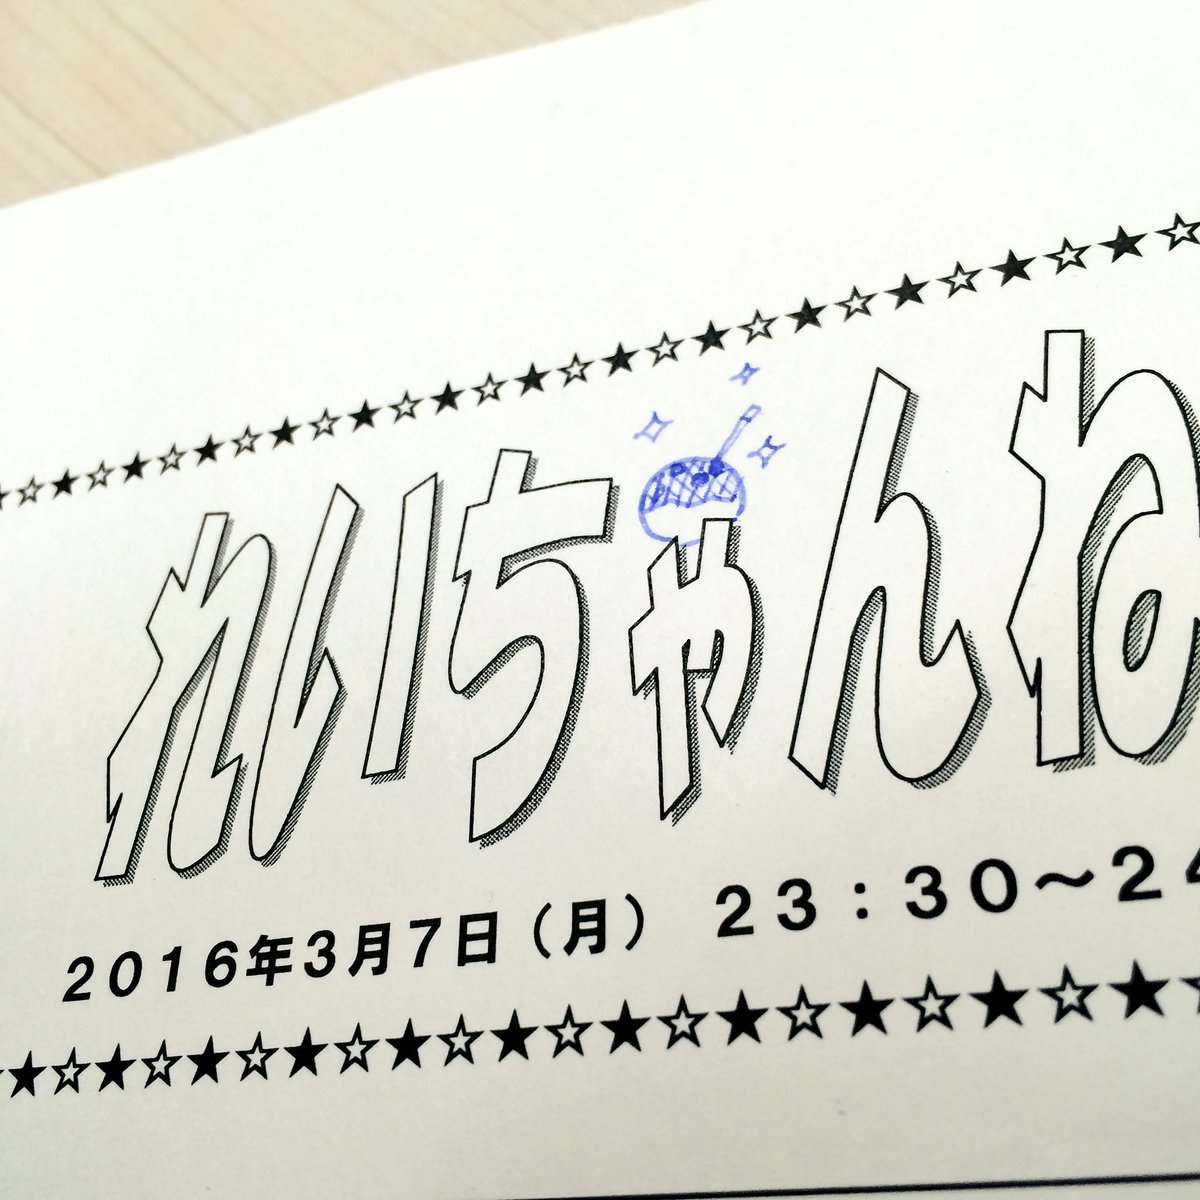 ★☆★☆★☆★☆★☆★☆★☆★☆★☆★☆★☆★☆★☆
れいちゃんね
2016年3月7日（月） 23：30～24
★☆★☆★☆★☆★☆★☆★☆★☆★☆★☆★☆★